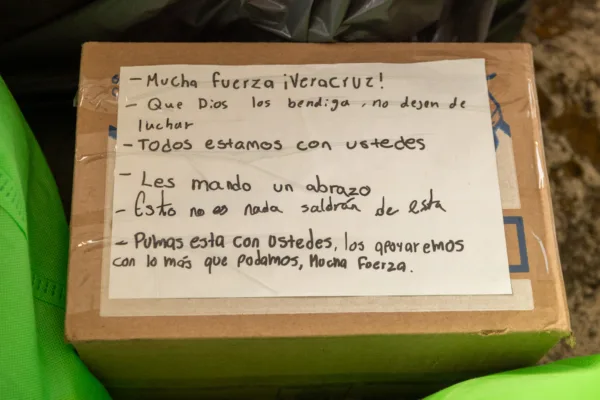 - Mucha fuerza ¡Veracruz!
- Que Dios los bendiga, no dejen de
luchar
- Todos estamos con ustedes
- Les mando un abrazo
- Esto no es nada saldrán de esta
- Pumas esta con ustedes, los apoyaremos
con lo más que podamos, Mucha Fuerza.